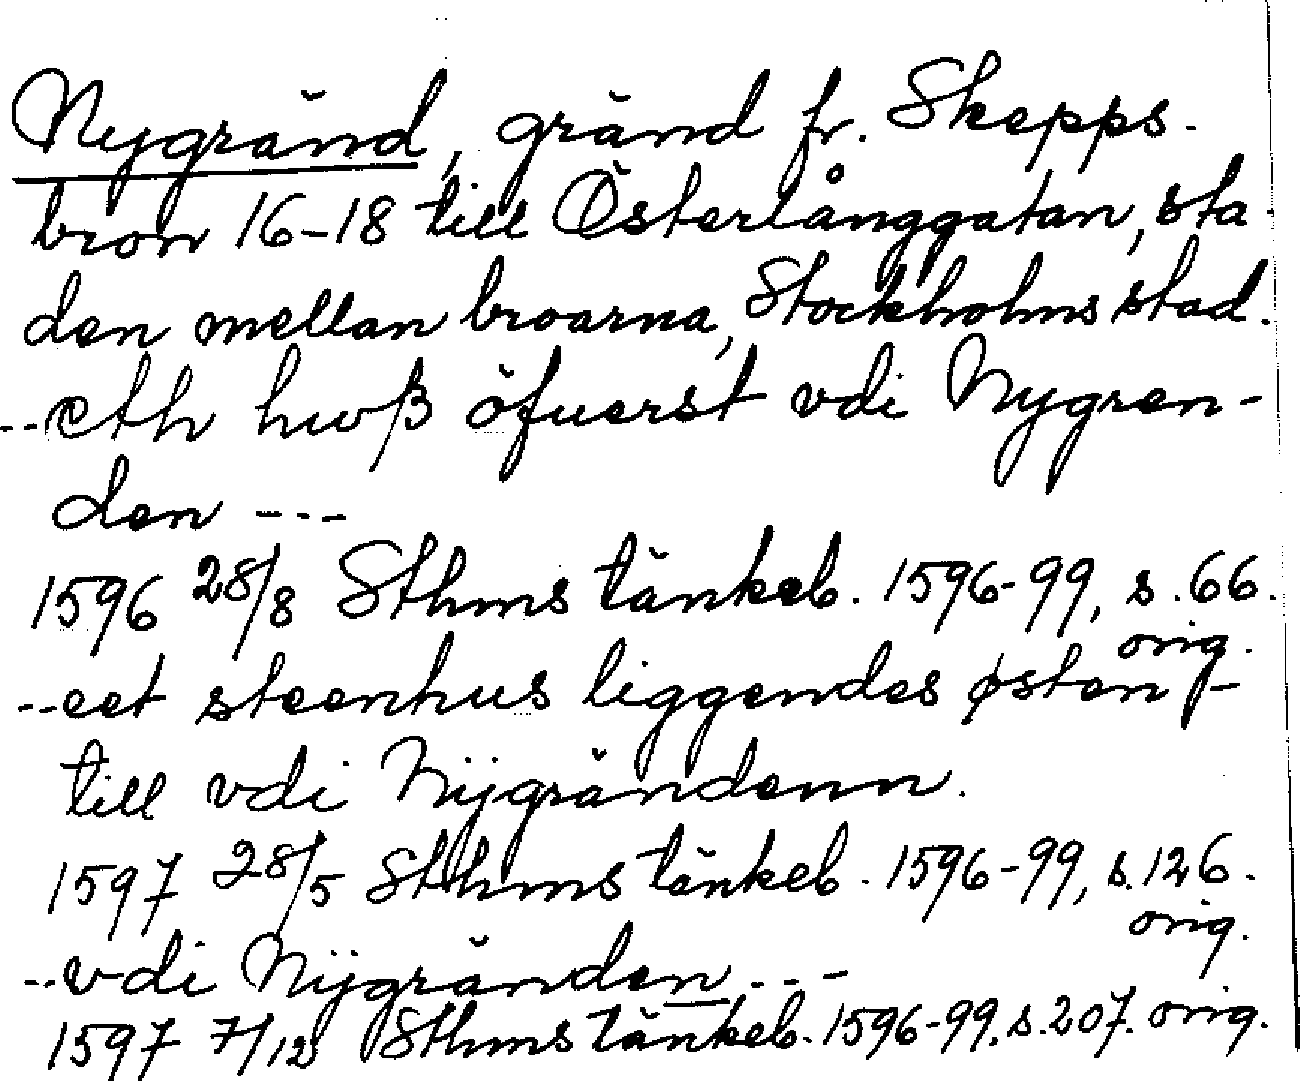 Nygränd, gränd fr. Skepps-
bron 16-18 till Österlånggatan, sta-
den mellan broarna, Stockholms stad.
--eth hwß öfuerst vdi Nygren-
den ---
1596 28/8 Sthms tänkeb. 1596-99, s. 66.
orig.
--eet steenhus liggendes østen-
till vdi Nÿgrändenn.
1597 28/5 Sthms tänkeb. 1596-99, s. 126.
orig.
--vdi Nÿgränden ---
1597 7/12 Sthms tänkeb. 1596-99. s. 207. orig.